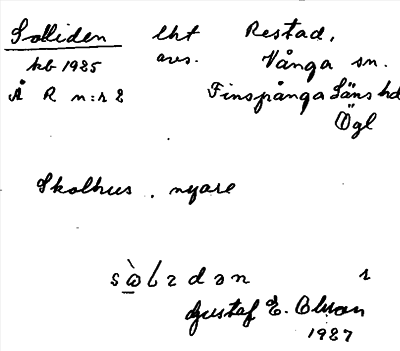 Solliden lht Restad,
kb 1925 avs. Vånga sn.
Å R n:r 2 Finspånga Läns hd
Ögl
Skolhus, nyare
1
Gustaf E. Olsson
1927